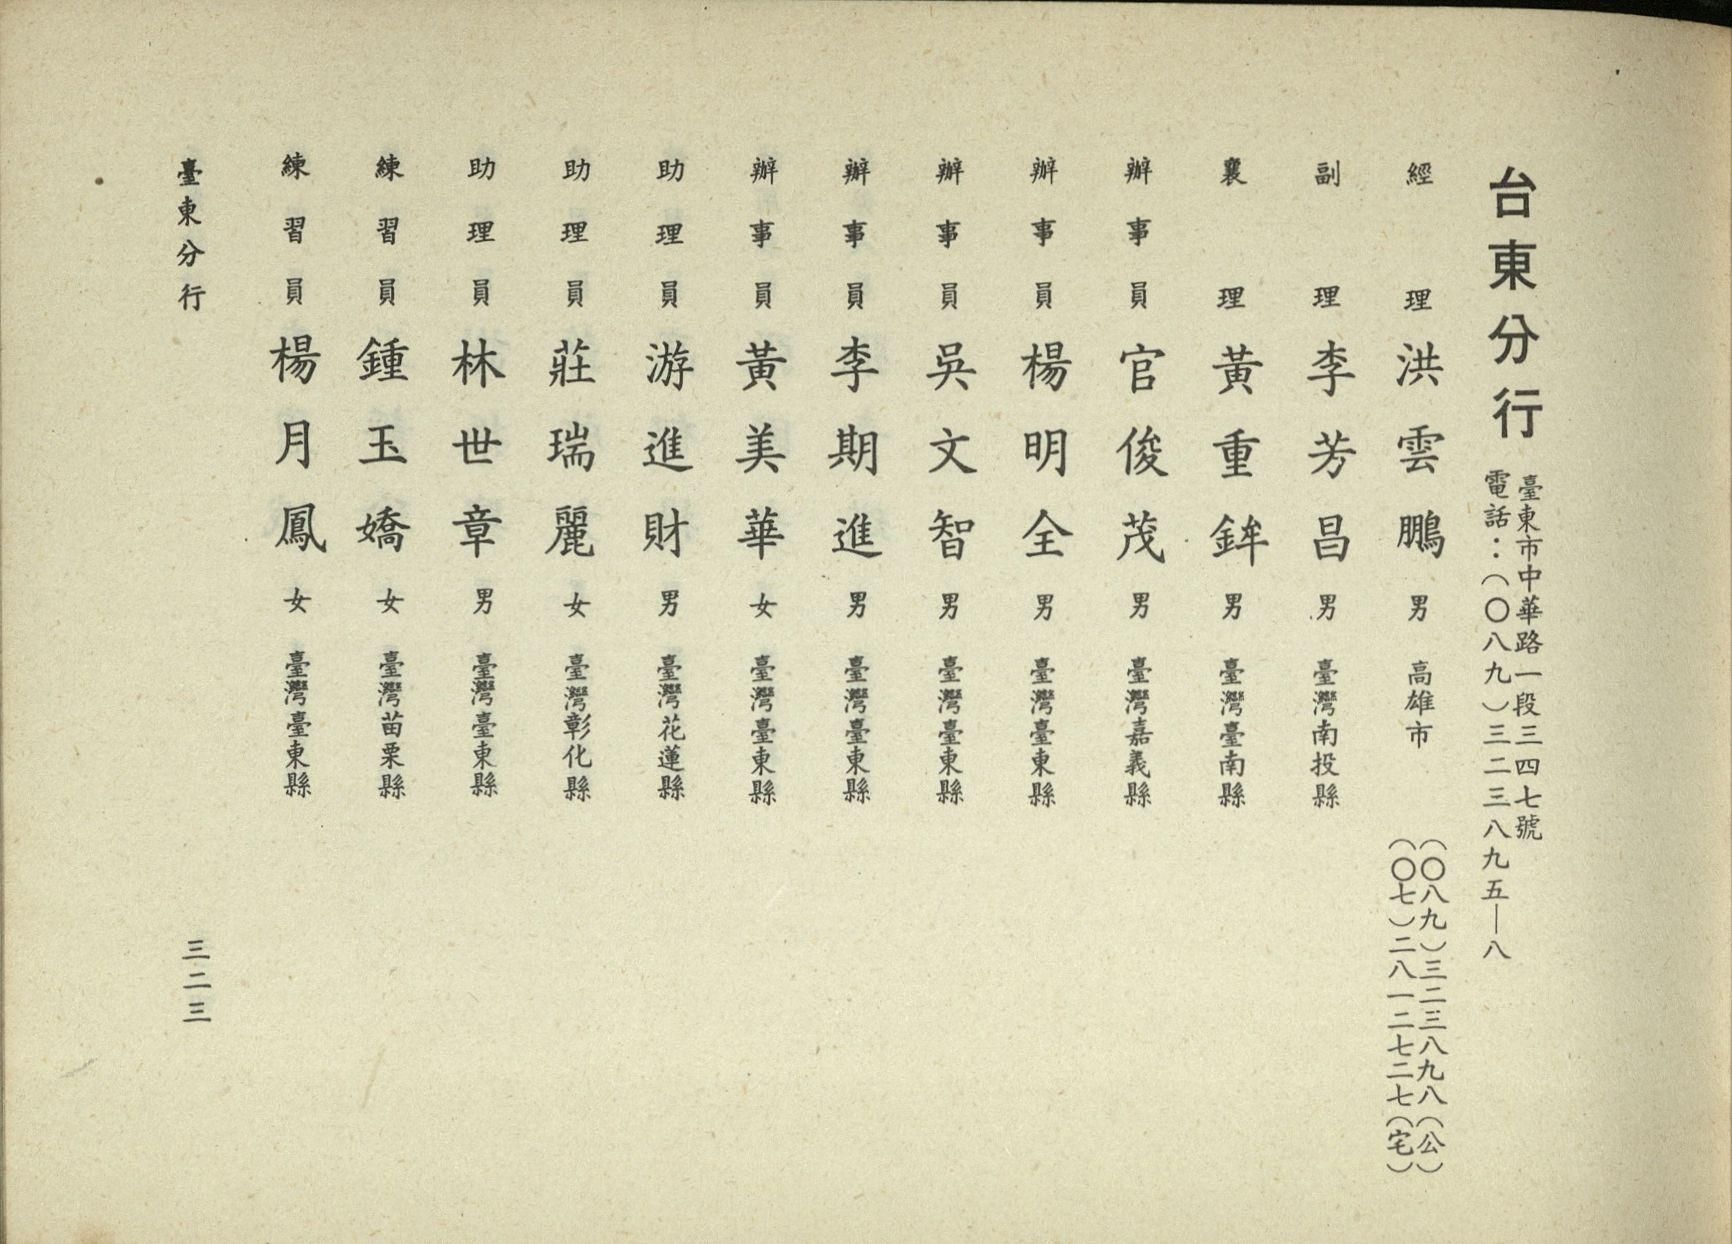 台東分行
臺東市中華路一段三四七號
電話：（〇八九）三二三八九五—八
經理 洪雲鵬 男 高雄市
（〇八九）三二三八九八（公）
（〇七）二八一二七二七（宅）
副理 李芳昌 男 臺灣南投縣
襄理 黃重鉾 男 臺灣臺南縣
辦事員 官俊茂 男 臺灣嘉義縣
辦事員 楊明全 男 臺灣臺東縣
辦事員 吳文智 男 臺灣臺東縣
辦事員 李期進 男 臺灣臺東縣
辦事員 黃美華 女 臺灣臺東縣
助理員 游進財 男 臺灣花蓮縣
助理員 莊瑞麗 女 臺灣彰化縣
助理員 林世章 男 臺灣臺東縣
練習員 鍾玉嬌 女 臺灣苗栗縣
練習員 楊月鳳 女 臺灣臺東縣
臺東分行
三二三